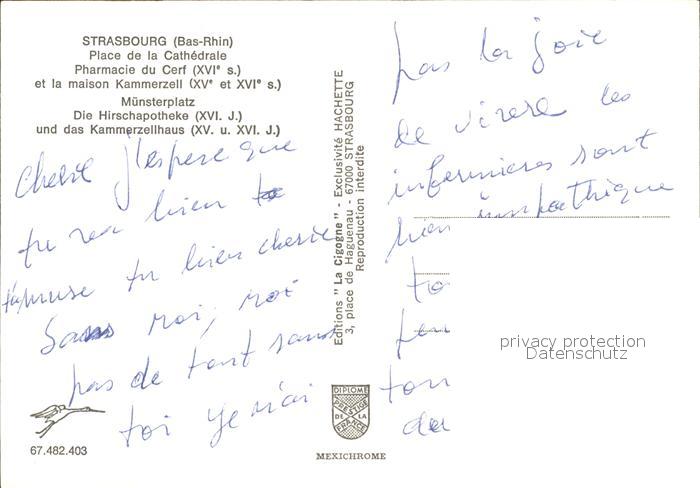 STRASBOURG (Bas-Rhin)
Place de la Cathédrale
Pharmacie du Cerf (XVIe s.)
et la maison Kammerzell (XVe et XVIe s.)
Münsterplatz
Die Hirschapotheke (XVI. J.)
und das Kammerzellhaus (XV. u. XVI. J.)
cheri j'espere que
tu va bien
t'amuse tu bien cherie
Sans moi, moi
pas de tout sans
toi je n'ai
67.482.403
Editions "La Cigogne" - Exclusivité HACHETTE
3, place de Haguenau - 67000 STRASBOURG
Reproduction interdite
DIPLOME
PRESTIGE
DE LA
FRANCE
MEXICHROME
pas la joie
de vivre les
infirmieres sont
bien
to
ton
privacy protection
Datenschutz